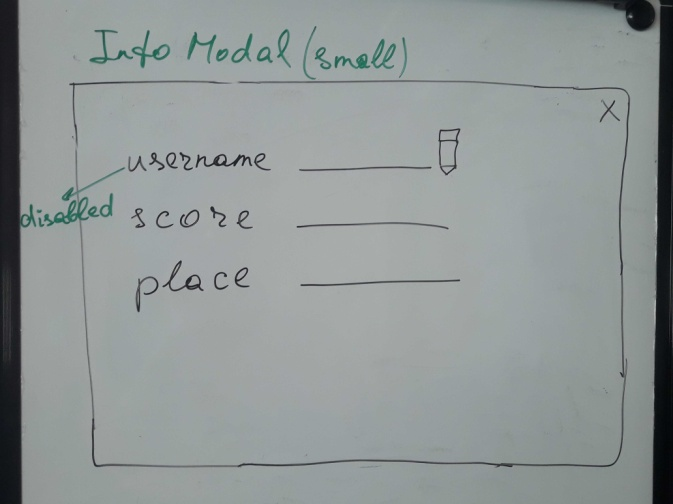 Info Modal (small)
X
username
disabled
score
place